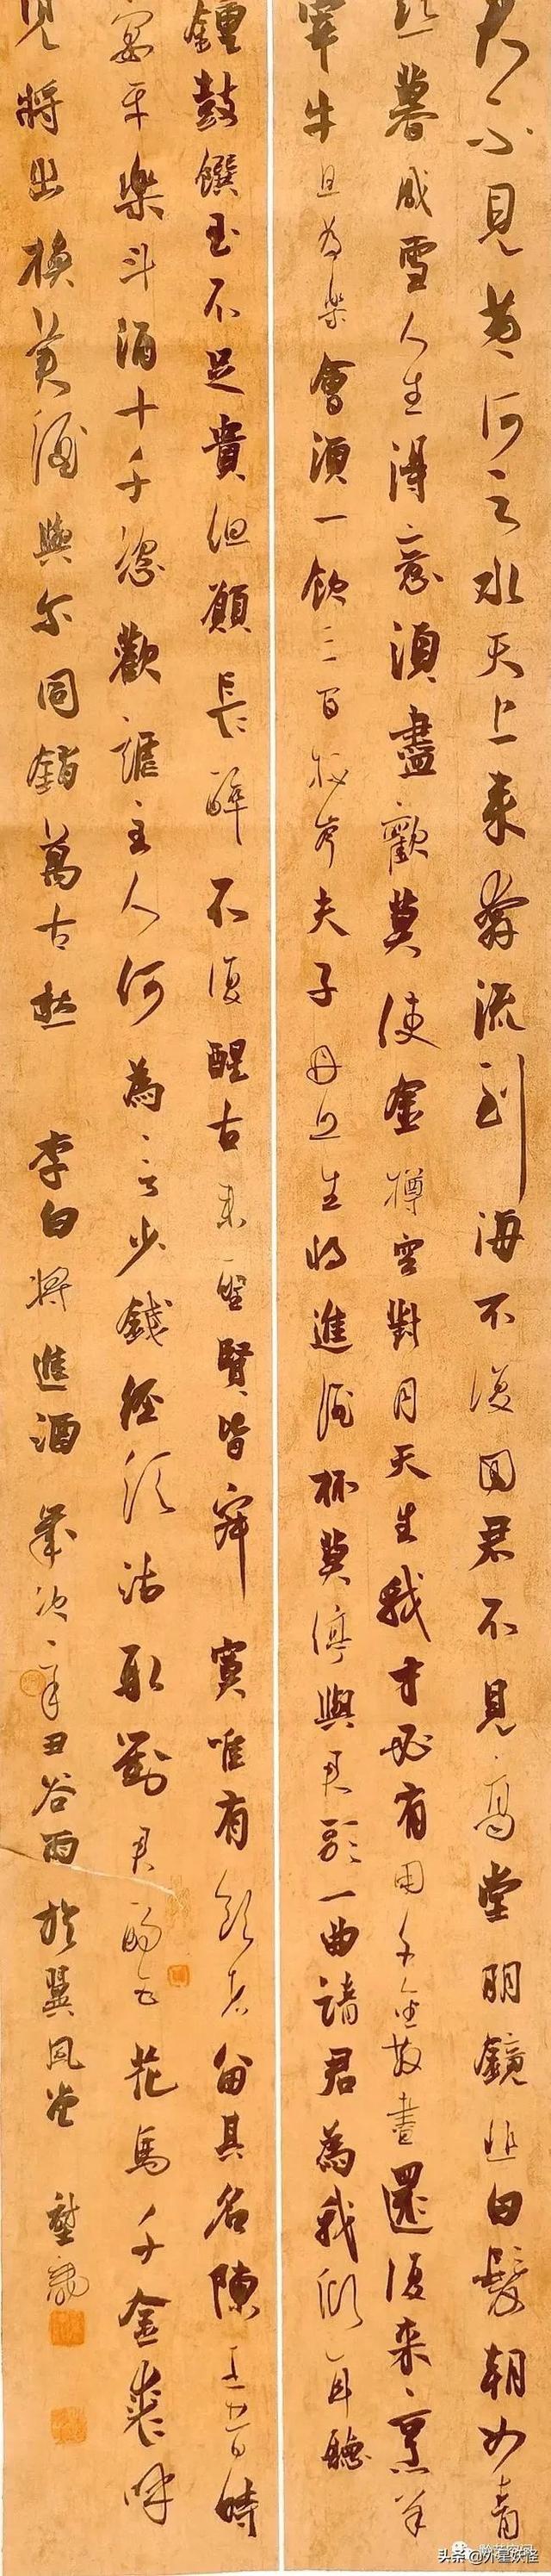 君不見黃河之水天上来奔流到海不復回君不見高堂明鏡悲白髮朝如青
丝暮成雪人生得意須盡歡莫使金樽空對月天生我才必有用千金散盡還復来烹羊
宰牛且為樂會須一飲三百杯岑夫子丹丘生將進酒杯莫停與君歌一曲請君為我倾耳聽
鍾鼓饌玉不足貴但願長醉不復醒古来聖賢皆寂寞唯有飲者留其名陳王昔時
宴平樂斗酒十千恣歡謔主人何為言少錢徑須沽取對君酌五花馬千金裘呼
兒將出換美酒與尔同銷萬古愁 李白將進酒 歲次辛丑谷雨於翼风堂
头条@外星妖怪